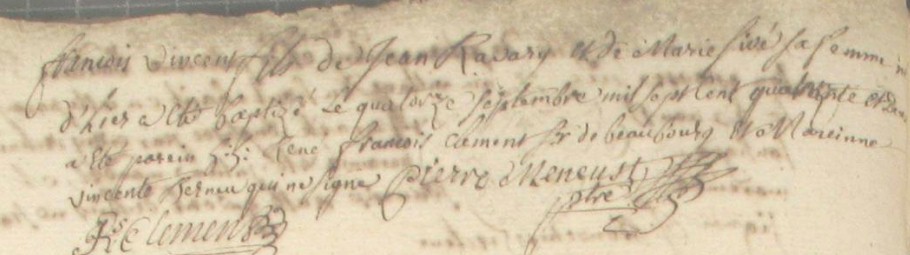 francois vincent fils de Jean Ravary et de Marie sivé sa femme
d'hier a eté baptizé le quatorze septembre mil sept cent quatre et
a eté parein René francois Clement sr de beaubourg et Mareinne
vincente qui ne signe Pierre Meneust
ptre
Clement